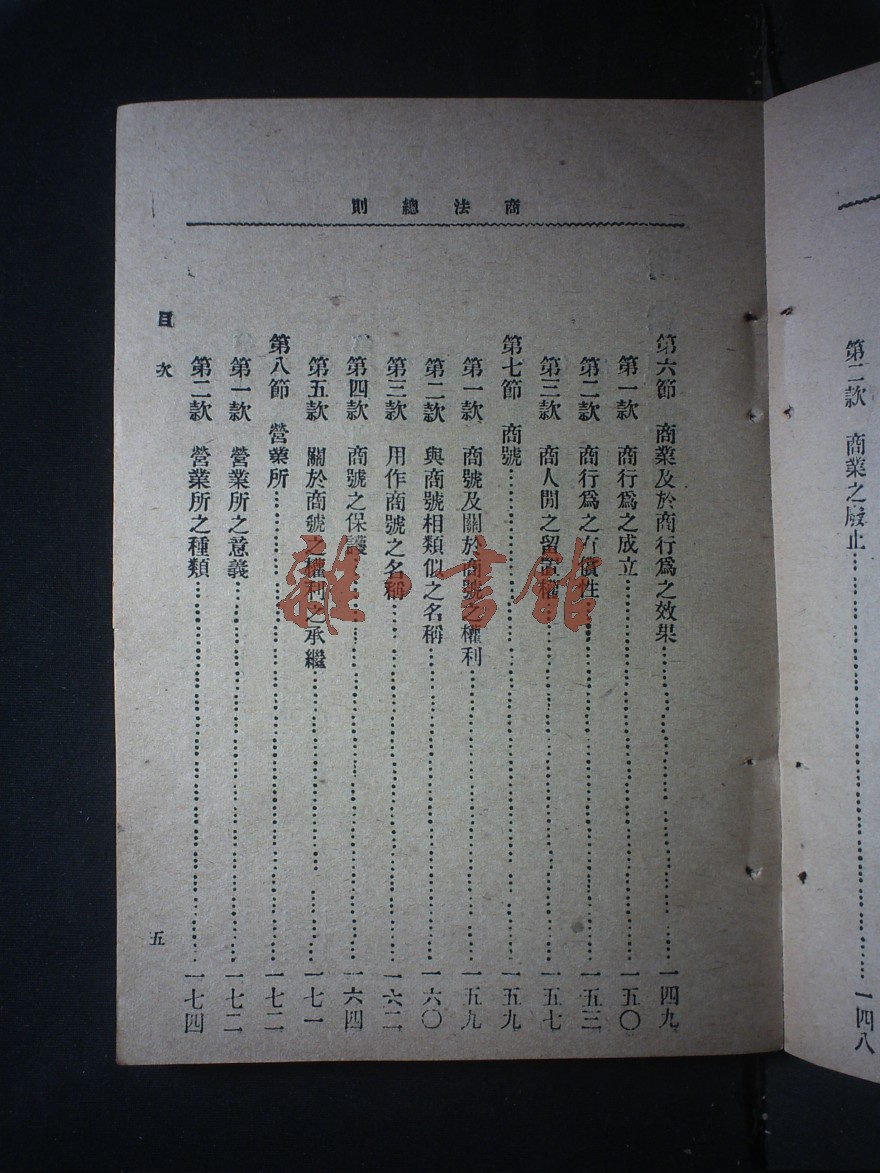 商法總則
第二款　商業之廢止……一四八
第六節　商業及於商行爲之效果……一四九
第一款　商行爲之成立……一五〇
第二款　商行爲之有償性……一五三
第三款　商人閒之留置權……一五七
第七節　商號……一五九
第一款　商號及關於商號之權利……一五九
第二款　與商號相類似之名稱……一六〇
第三款　用作商號之名稱……一六二
第四款　商號之保護……一六四
第五款　關於商號之權利之承繼……一七一
第八節　營業所……一七二
第一款　營業所之意義……一七二
第二款　營業所之種類……一七四
目次
五
雜·書館